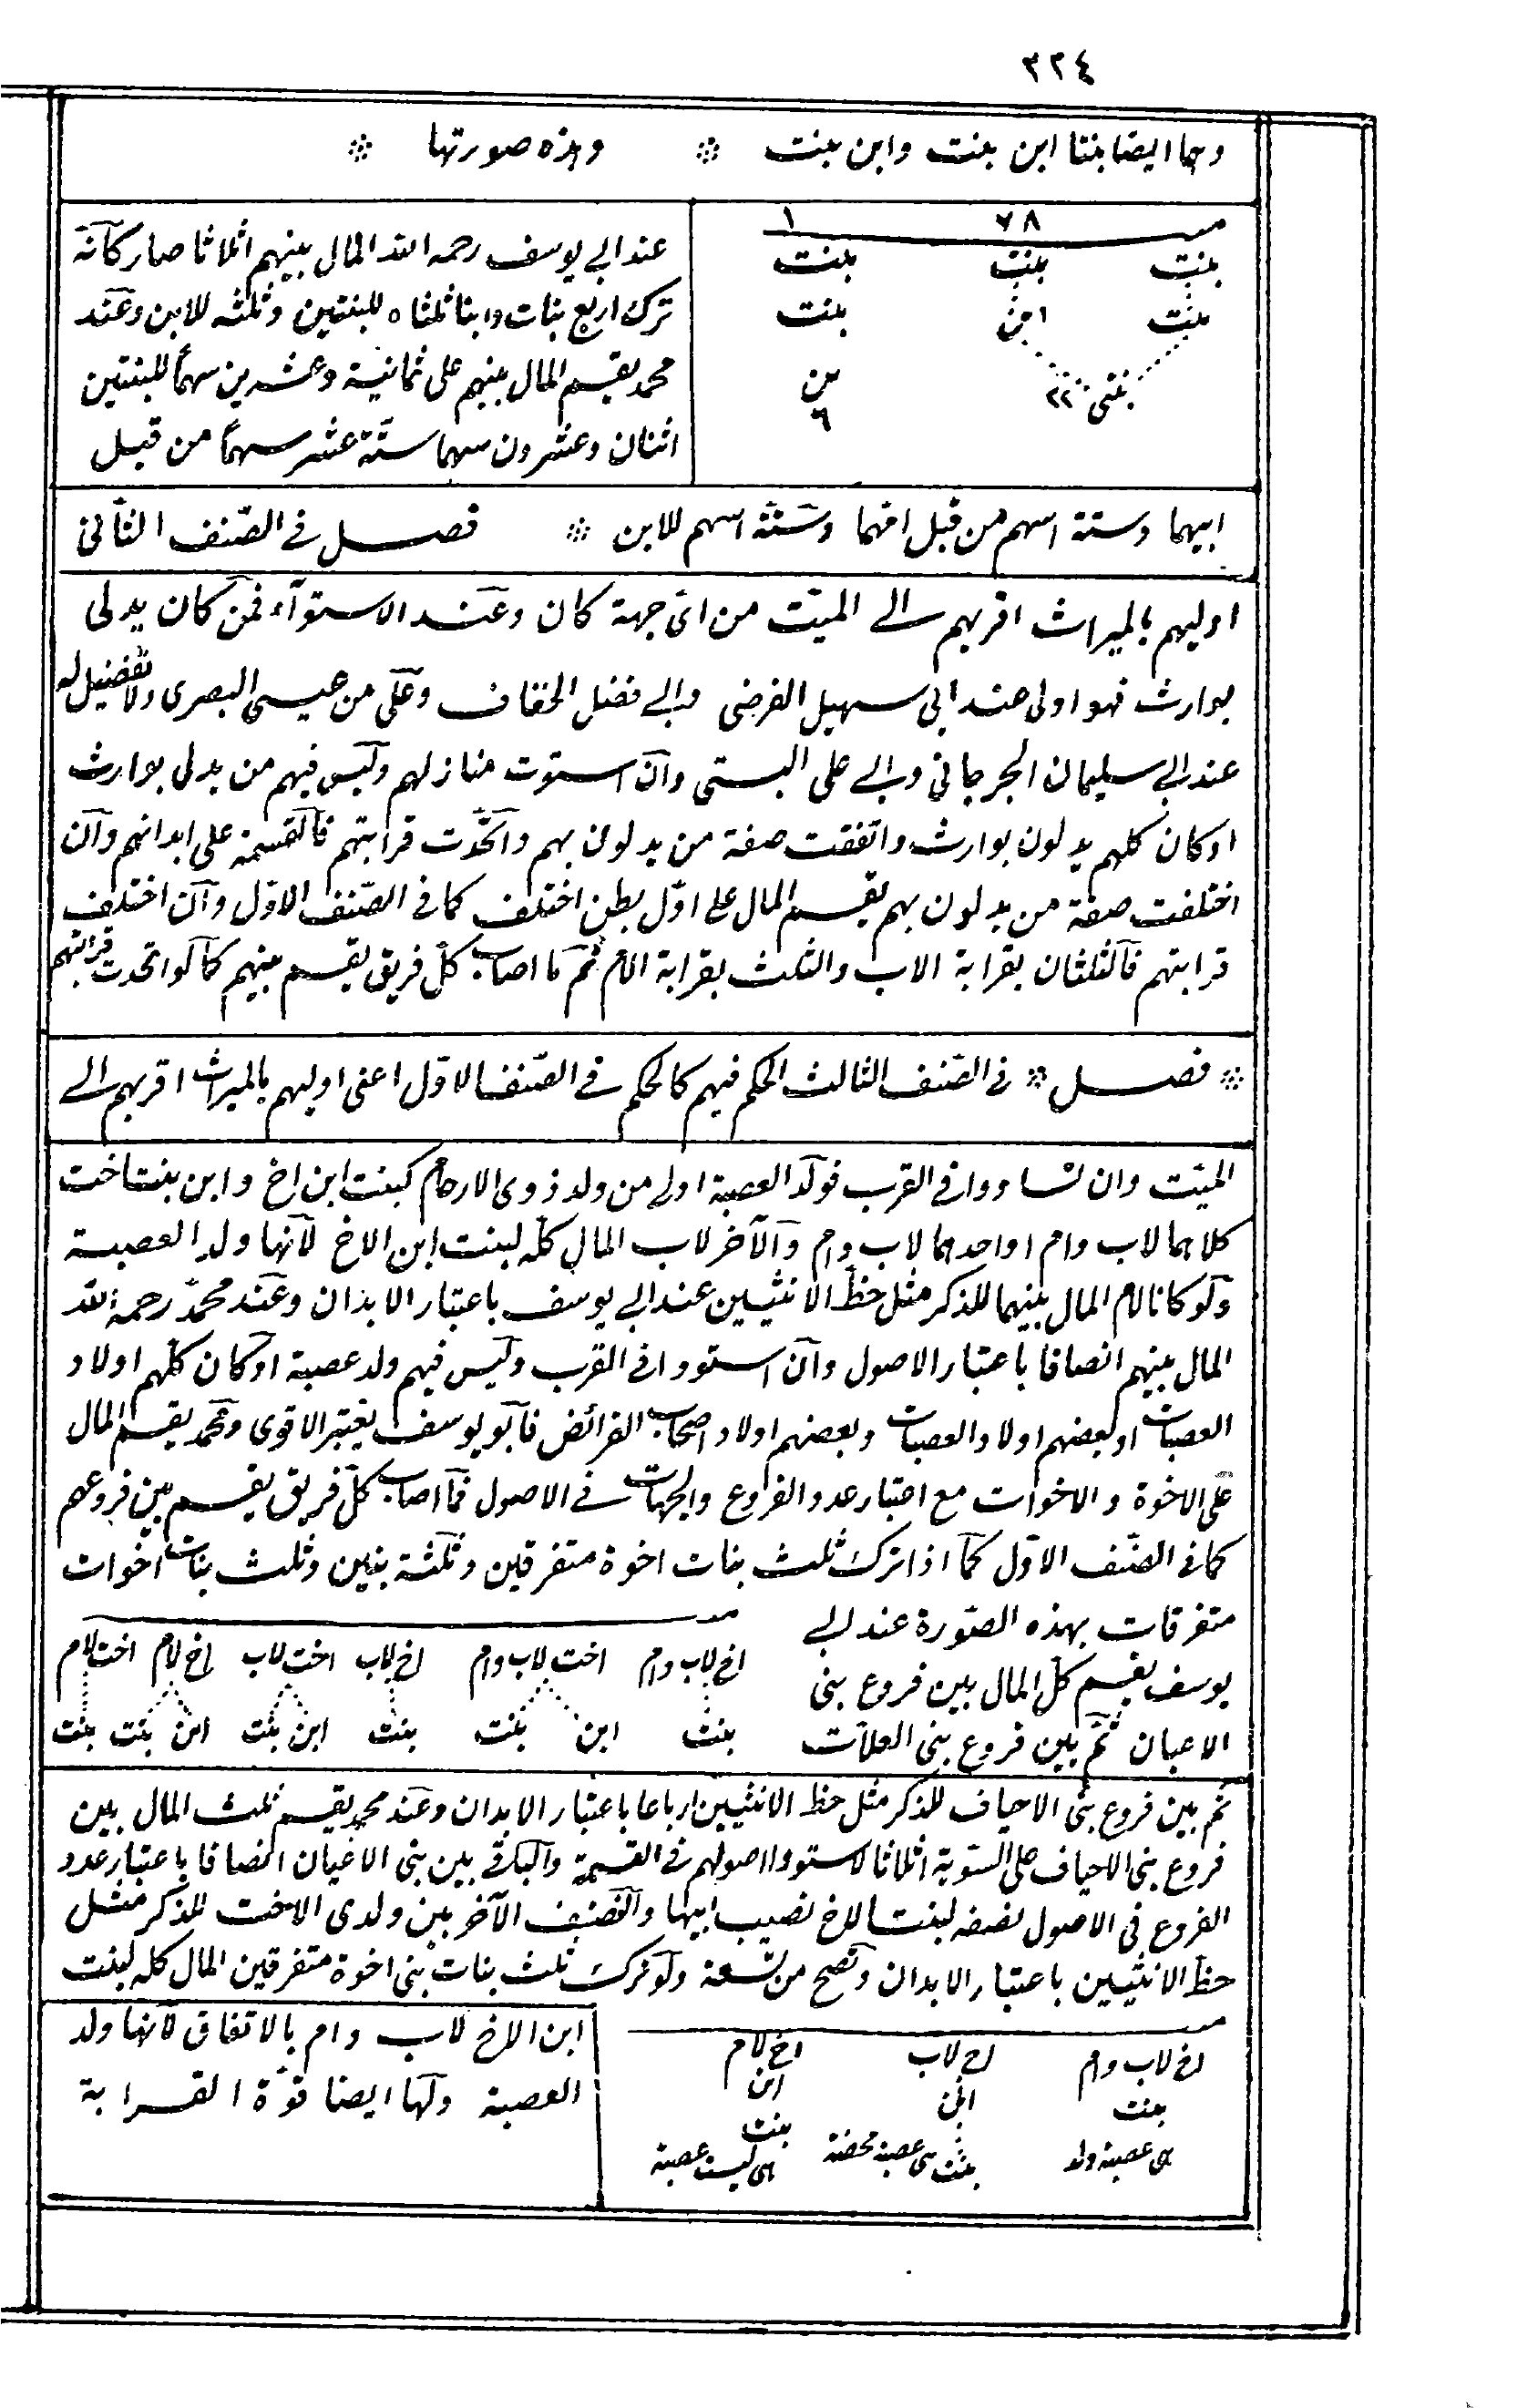 ٣٢٤
وهما ايضا بنتا ابن بنت وابن بنت وهذه صورتها
ميت ٢٨ ١
بنت بنت بنت
بنت ابن بنت
بنتى ٢٢ ابن
٦
عند ابى يوسف رحمه الله المال بينهم اثلاثا صار كأنه
ترك اربع بنات وابنا ثلثاه للبنتين وثلثه للابن وعند
محمد يقسم المال بينهم على ثمانية وعشرين سهما للبنتين
اثنان وعشرون سهما ستة عشر سهما من قبل
ابيهما وستة اسهم من قبل امهما وستة اسهم للابن فصل فى الصنف الثانى
اوليهم بالميراث اقربهم الى الميت من اى جهة كان وعند الاستوآء فمن كان يدلى
بوارث فهو اولى عند ابى سهيل الفرضى وابى فضل الخفاف وعلى من عيسى البصرى ولا تفضيل له
عند ابى سليمان الجرجانى وابى على البستى وان استوت منازلهم وليس فيهم من يدلى بوارث
او كان كلهم يدلون بوارث واتفقت صفة من يدلون بهم واتحدت قرابتهم فالقسمة على ابدانهم وان
اختلفت صفة من يدلون بهم يقسم المال على اول بطن اختلف كما فى الصنف الاول وان اختلف
قرابتهم فالثلثان بقرابة الاب والثلث بقرابة الام ثم ما اصاب كل فريق يقسم بينهم كما لو اتحدت قرابتهم
فصل فى الصنف الثالث الحكم فيهم كالحكم فى الصنف الاول اعنى اوليهم بالميراث اقربهم الى
الميت وان تساووا فى القرب فولد العصبة اولى من ولد ذوى الارحام كبنت ابن اخ وابن بنت اخت
كلاهما لاب وام او احدهما لاب وام والآخر لاب المال كله لبنت ابن الاخ لانها ولد العصبة
ولو كانا لام المال بينهما للذكر مثل حظ الانثيين عند ابى يوسف باعتبار الابدان وعند محمد رحمه الله
المال بينهم انصافا باعتبار الاصول وان استووا فى القرب وليس فيهم ولد عصبة او كان كلهم اولاد
العصبات او بعضهم اولاد العصبات وبعضهم اولاد اصحاب الفرائض فابو يوسف يعتبر الاقوى ومحمد يقسم المال
على الاخوة والاخوات مع اعتبار عدد الفروع والجهات فى الاصول فما اصاب كل فريق يقسم بين فروعهم
كما فى الصنف الاول كما اذا ترك ثلث بنات اخوة متفرقين وثلثة بنين وثلث بنات اخوات
متفرقات بهذه الصورة عند ابى
يوسف يقسم كل المال بين فروع بنى
الاعيان ثم بين فروع بنى العلات
ميت
اخ لاب وام اخت لاب وام اخ لاب اخت لاب اخ لام اخت لام
بنت ابن بنت بنت ابن بنت ابن بنت بنت
ثم بين فروع بنى الاخياف للذكر مثل حظ الانثيين ارباعا باعتبار الابدان وعند محمد يقسم ثلث المال بين
فروع بنى الاخياف على السوية اثلاثا لاستووا اصولهم فى القسمة والباقى بين بنى الاعيان انصافا باعتبار عدد
الفروع فى الاصول نصفه لبنت الاخ نصيب ابيها والنصف الآخر بين ولدى الاخت للذكر مثل
حظ الانثيين باعتبار الابدان وتصح من تسعة ولو ترك ثلث بنات بنى اخوة متفرقين المال كله لبنت
ابن الاخ لاب وام بالاتفاق لانها ولد
العصبة ولها ايضا قوة القرابة
ميت
اخ لاب وام اخ لاب اخ لام
بنت ابن ابن
هى عصبة ولد بنت هى عصبة محضة بنت
هى ليست عصبة